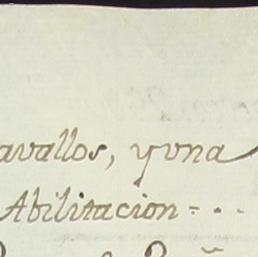 avallos, y vna
Abilitacion - . . .